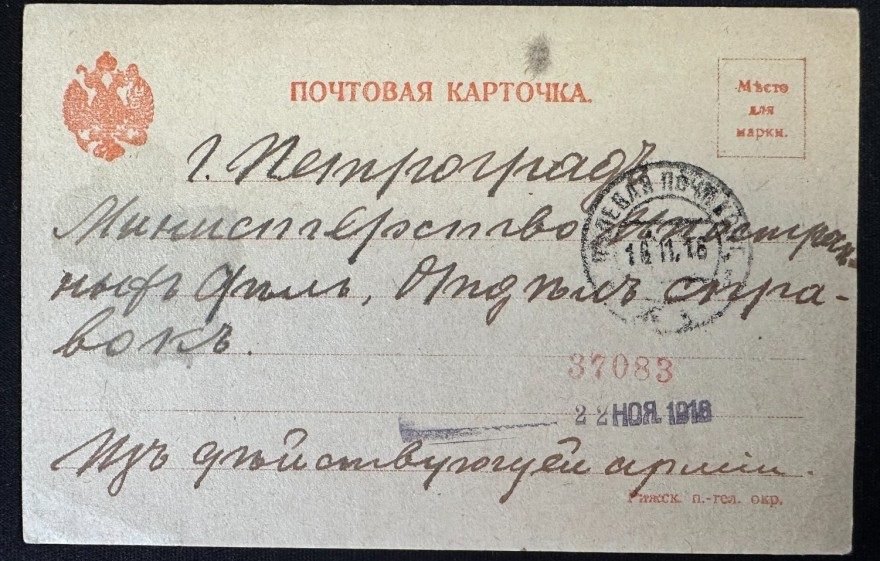 ПОЧТОВАЯ КАРТОЧКА.
Мѣсто
для
марки.
г. Петроградъ
ПОЛЕВАЯ ПОЧТ
16.11.16
Министерство иностран-
ныхъ дѣлъ, Отдѣлъ спра-
вокъ.
37083
22 НОЯ. 1916
Изъ дѣйствующей арміи.
Рижск. п.-тел. окр.